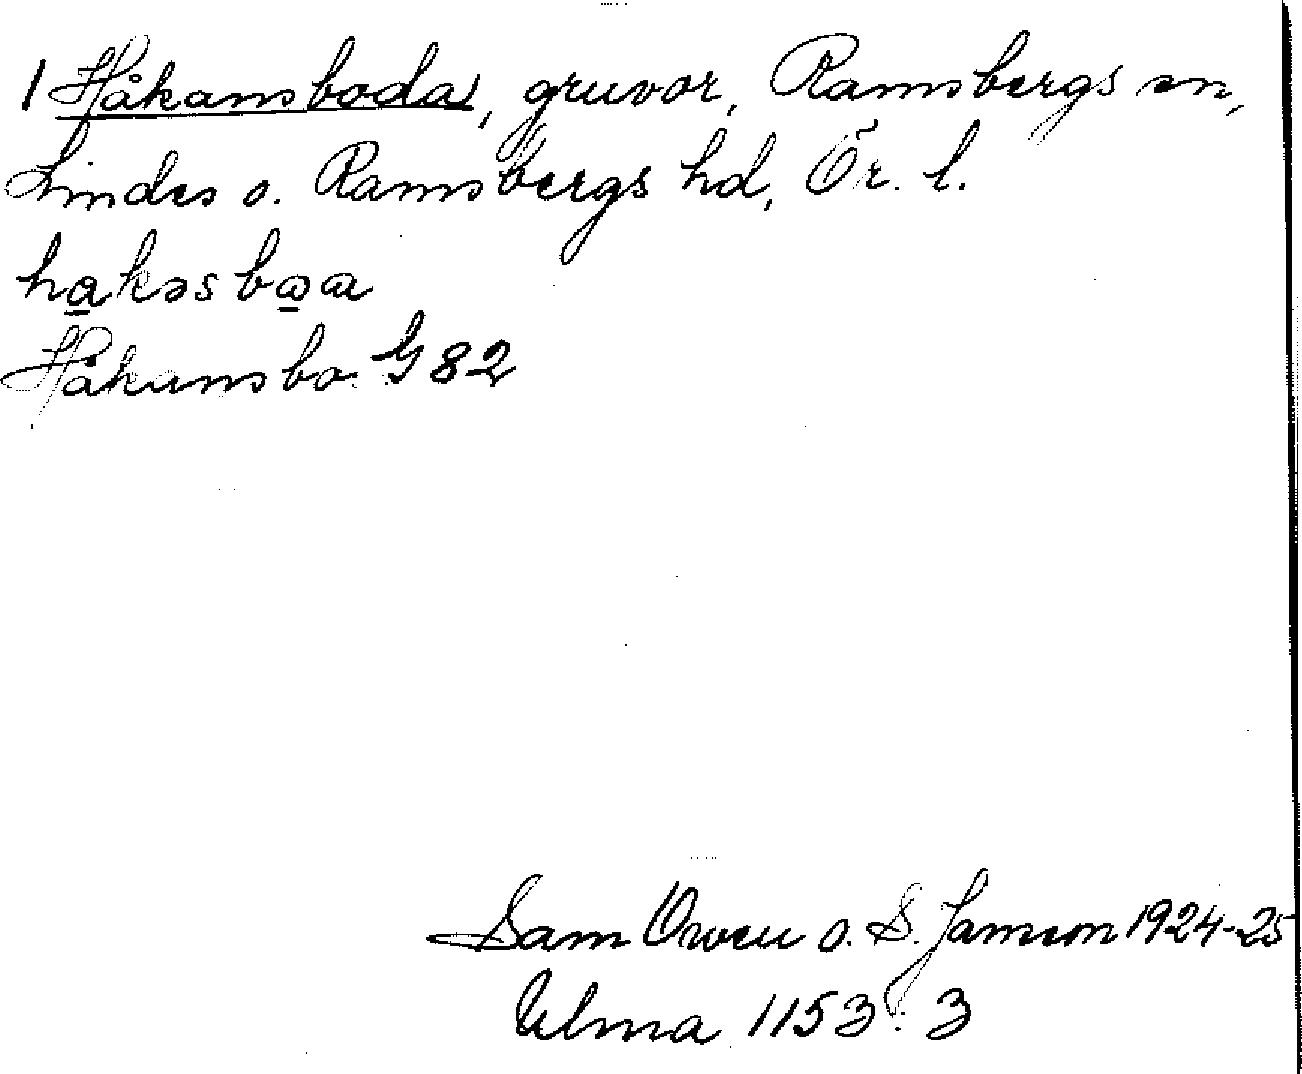 1 Håkansboda, gruvor, Ramsbergs sn,
Lindes o. Ramsbergs hd, Ör. l.
hakəsbωa
Håkansbo G82
Sam Owen o. S. Janson 1924-25
Ulma 1153:3